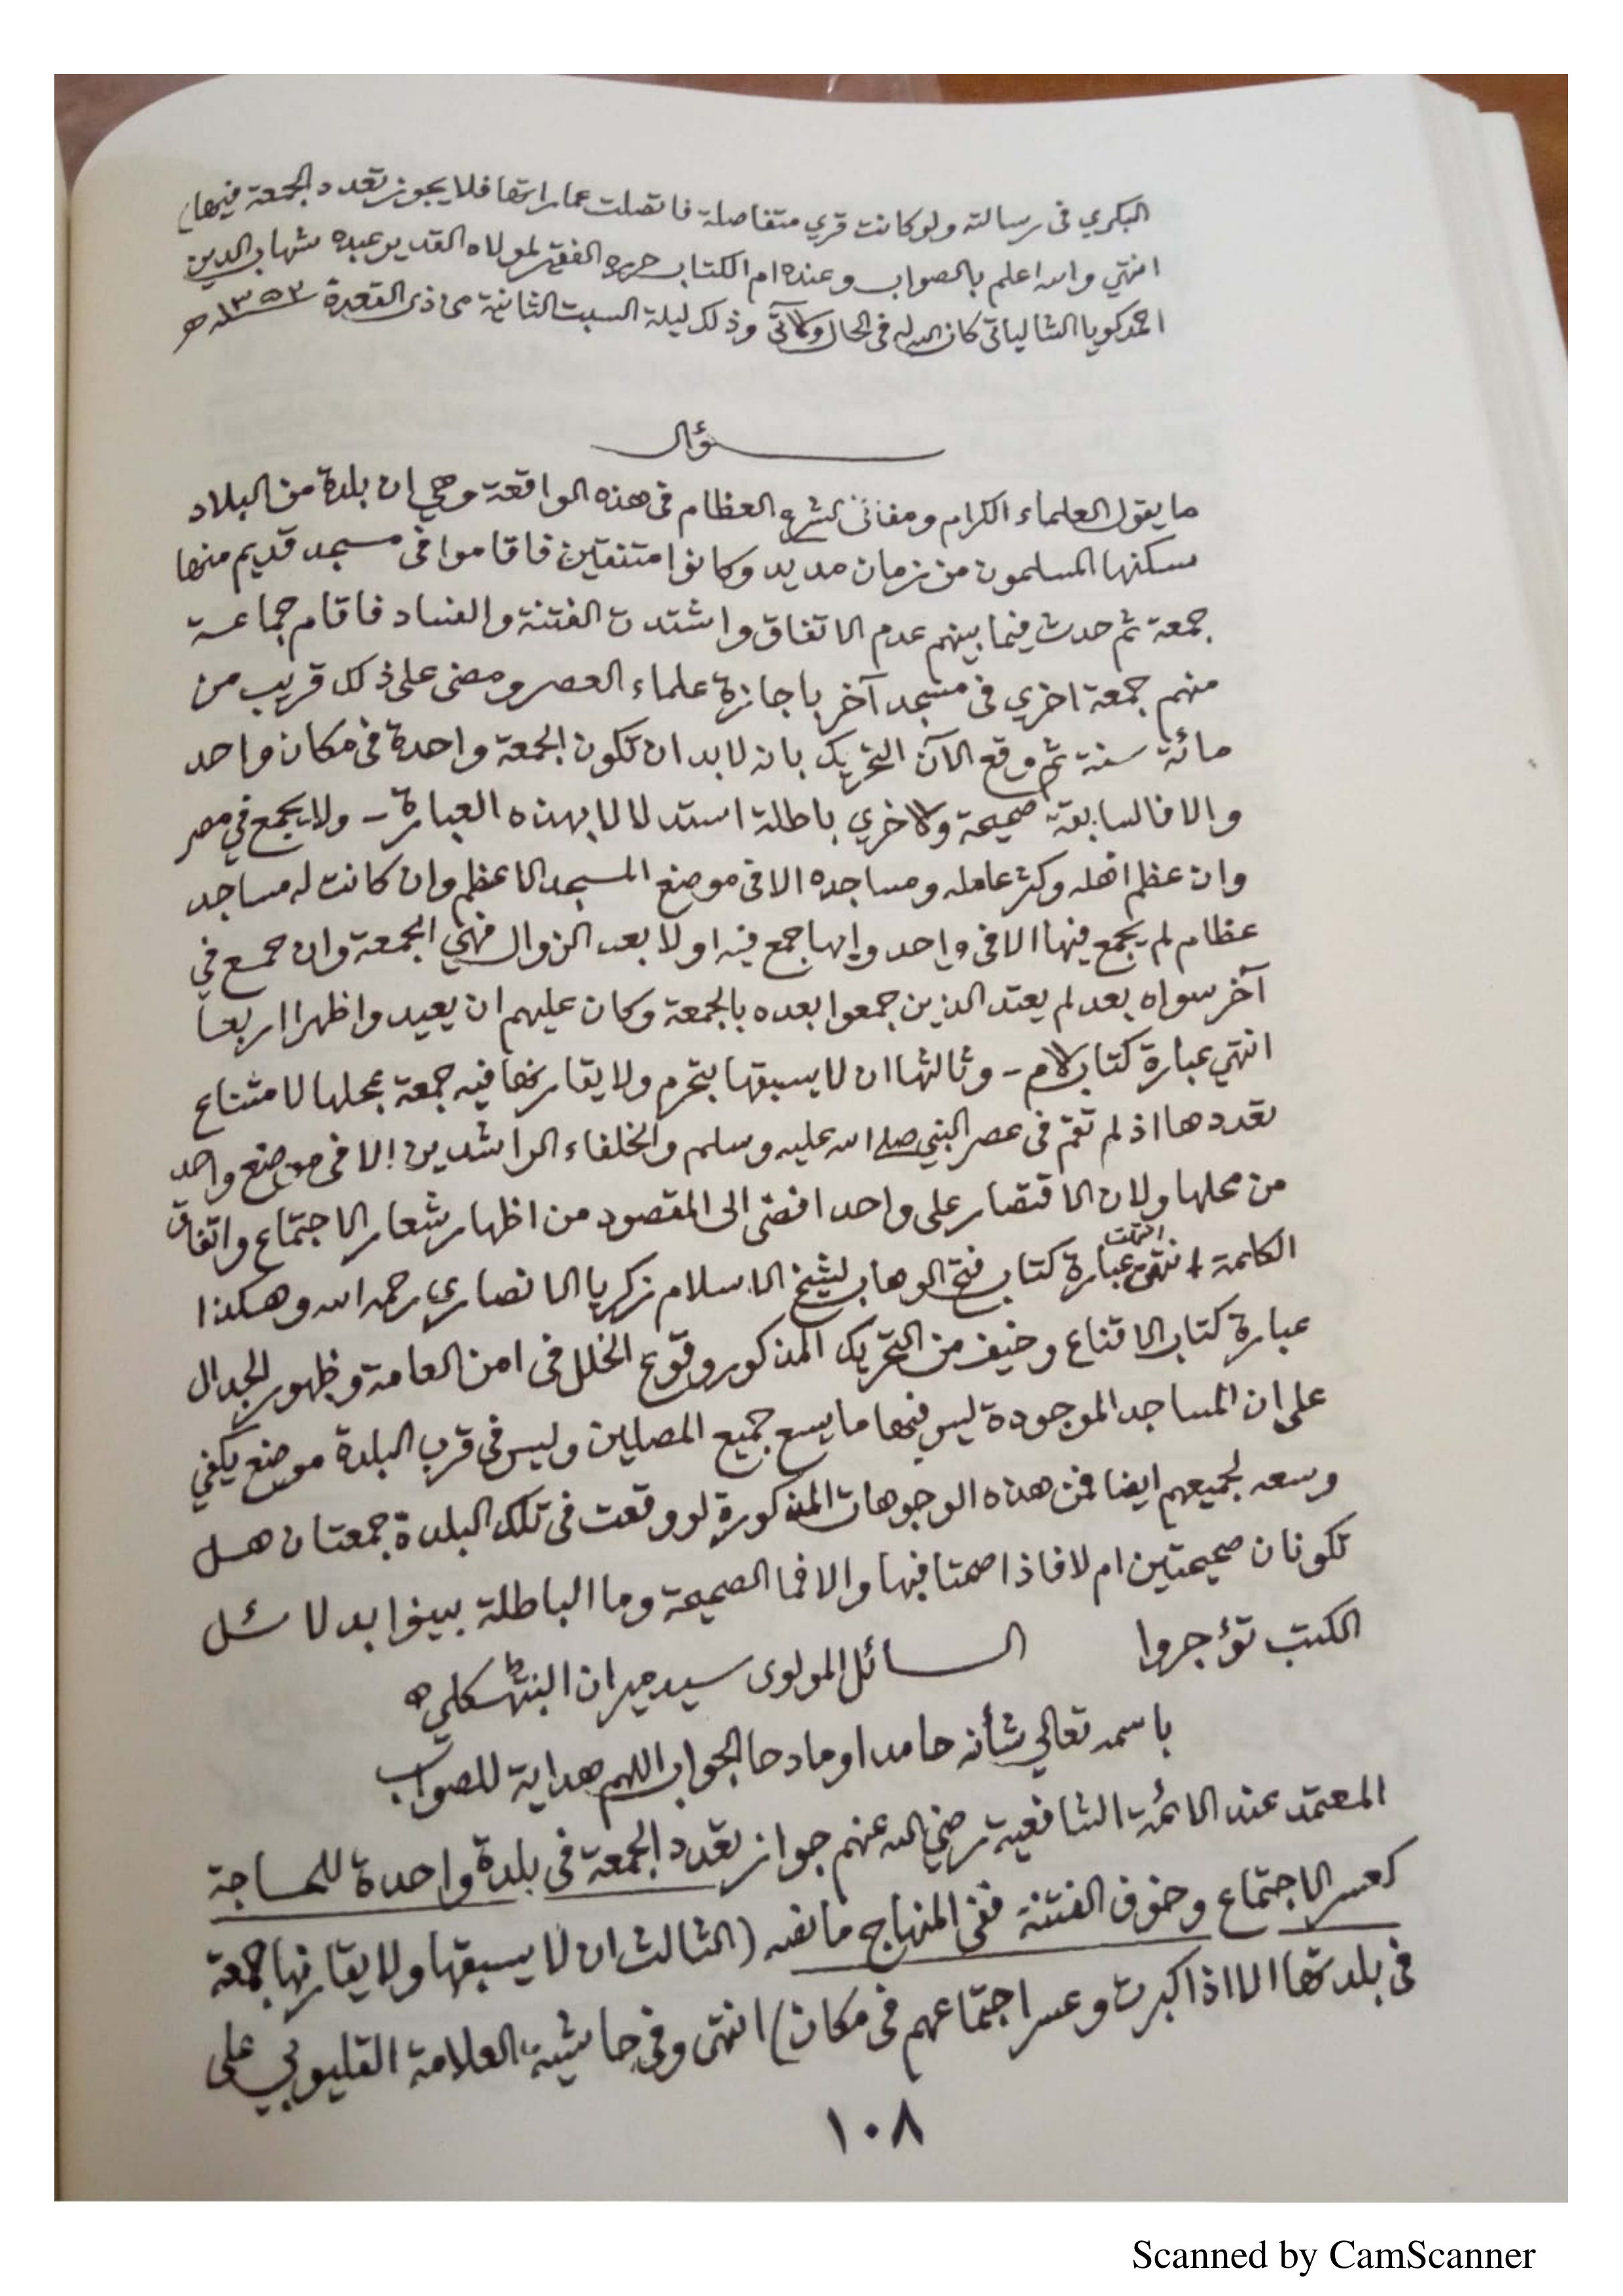 البكري في رسالته ولو كانت قري متفاصلة فاتصلت عماراتها فلا يجوز تعدد الجمعة فيها
انتهي والله اعلم بالصواب وعنده ام الكتاب حرره الفقير لمولاه القدير عبده شهاب الدين
احمد كويا الشالياتي كان الله له في الحال والآتي وذلك ليلة السبت الثانية من ذي القعدة ١٣٥٣ـه
سؤال
ما يقول العلماء الكرام ومفاتي الشرع العظام في هذه الواقعة وهي ان بلدة من البلاد
سكنها المسلمون من زمان مديد وكانوا متفقين فاقاموا في مسجد قديم منها
جمعة ثم حدث فيما بينهم عدم الاتفاق واشتدت الفتنة والفساد فاقام جماعة
منهم جمعة اخري في مسجد آخر باجازة علماء العصر ومضى على ذلك قريب من
مائة سنة ثم وقع الآن التحريك بانه لابد ان تكون الجمعة واحدة في مكان واحد
والا فالسابقة صحيحة والاخري باطلة استدلالا بهذه العبارة - ولا يجمع في مصر
وان عظم اهله وكثر عامله ومساجده الا في موضع المسجد الاعظم وان كانت له مساجد
عظام لم يجمع فيها الا في واحد وايها جمع فيه اولا بعد الزوال فهي الجمعة وان جمع في
آخر سواه بعد لم يعتد الذين جمعوا بعده بالجمعة وكان عليهم ان يعيدوا ظهرا اربعا
انتهي عبارة كتاب الام - وثالثها ان لا يسبقها بتحرم ولا يقارنها فيه جمعة بمحلها لامتناع
تعددها اذ لم تقم في عصر النبي صلى الله عليه وسلم والخلفاء الراشدين الا في موضع واحد
من محلها ولان الاقتصار على واحد افضى الى المقصود من اظهار شعار الاجتماع واتفاق
الكلمة انتهت عبارة كتاب فتح الوهاب لشيخ الاسلام زكريا الانصاري رحمه الله وهكذا
عبارة كتاب الاقناع وخيف من التحريك المذكور وقوع الخلل في امن العامة وظهور الجدال
على ان المساجد الموجودة ليس فيها ما يسع جميع المصلين وليس في قرب البلدة موضع يكفي
وسعه لجميعهم ايضا فمن هذه الوجوهات المذكورة لو وقعت في تلك البلدة جمعتان هل
تكونان صحيحتين ام لا فاذا صحتا فبها والا فما الصحيحة وما الباطلة بينوا بدلائل
الكتب تؤجروا السائل المولوى سيد ميران
باسمه تعالي شأنه حامدا ومادحا الجواب اللهم هداية للصواب
المعتمد عند الائمة الشافعية رضي الله عنهم جواز تعدد الجمعة في بلدة واحدة للحاجة
كعسر الاجتماع وخوف الفتنة ففي المنهاج ما نصه (الثالث ان لا يسبقها ولا يقارنها جمعة
في بلدتها الا اذا كبرت وعسر اجتماعهم في مكان) انتهى وفي حاشية العلامة القليوبي على
١٠٨
Scanned by CamScanner